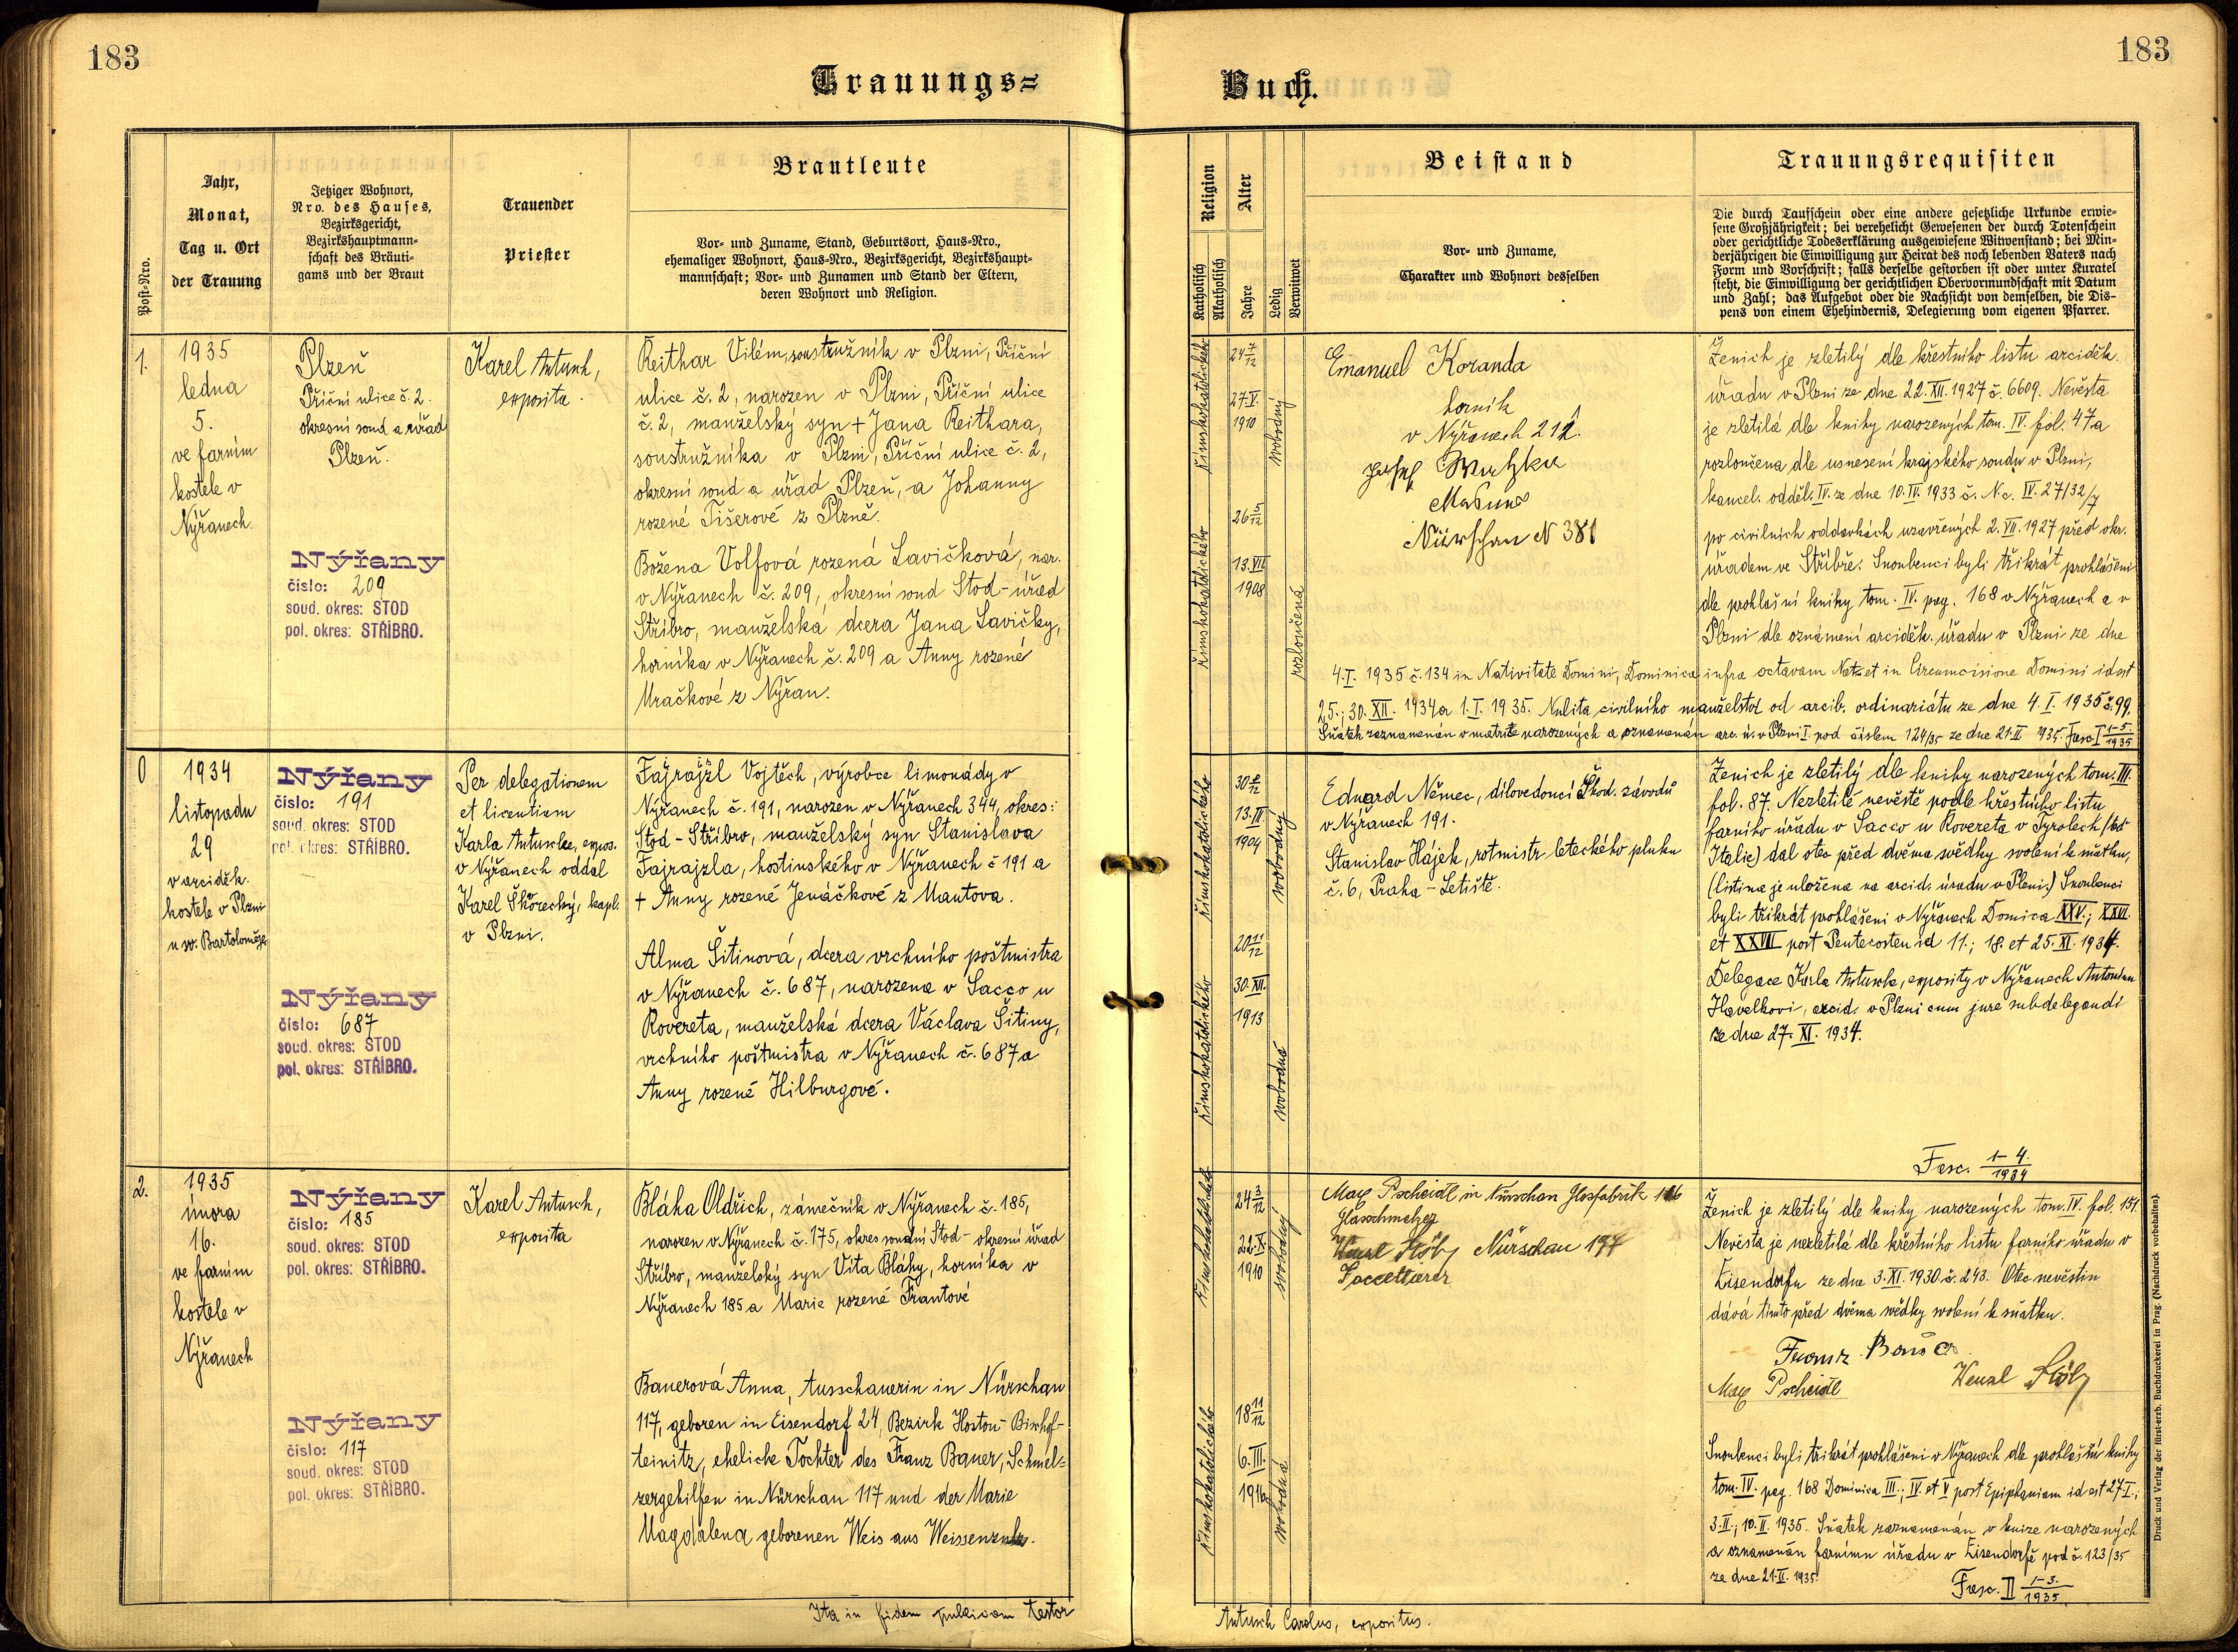 183
183
Trauungs=
Buch.
Post=Nro.
Jahr,
Monat,
Tag u. Ort
der Trauung
Jetziger Wohnort,
Nro. des Hauses,
Bezirksgericht,
Bezirkshauptmann=
schaft des Bräuti=
gams und der Braut
Trauender
Priester
Brautleute
Vor= und Zuname, Stand, Geburtsort, Haus=Nro.,
ehemaliger Wohnort, Haus=Nro., Bezirksgericht, Bezirkshaupt=
mannschaft; Vor= und Zunamen und Stand der Eltern,
deren Wohnort und Religion.
Religion
Katholisch
Akatholisch
Alter
Jahre
Ledig
Verwitwet
Beistand
Vor= und Zuname,
Charakter und Wohnort desselben
Trauungsrequisiten
Die durch Taufschein oder eine andere gesetzliche Urkunde erwie=
sene Großjährigkeit; bei verehelicht Gewesenen der durch Totenschein
oder gerichtliche Todeserklärung ausgewiesene Witwenstand; bei Min=
derjährigen die Einwilligung zur Heirat des noch lebenden Vaters nach
Form und Vorschrift; falls derselbe gestorben ist oder unter Kuratel
steht, die Einwilligung der gerichtlichen Obervormundschaft mit Datum
und Zahl; das Aufgebot oder die Nachsicht von demselben, die Dis=
pens von einem Ehehindernis, Delegierung vom eigenen Pfarrer.
1.
1935
ledna
5.
ve farním
kostele v
Nýřanech.
Plzeň
Příční ulice č. 2.
okresní soud a úřad
Plzeň.
Nýřany
číslo: 209
soud. okres: STOD
pol. okres: STŘÍBRO.
Karel Antusch,
exposita.
Reithar Vilém, soustružník v Plzni, Příční
ulice č. 2, narozen v Plzni, Příční ulice
č. 2, manželský syn + Jana Reithara,
soustružníka v Plzni, Příční ulice č. 2,
okresní soud a úřad Plzeň, a Johanny
rozené Tišerové z Plzně.
Božena Volfová rozená Lavičková, nar.
v Nýřanech č. 209, okresní soud Stod - úřad
Stříbro, manželská dcera Jana Lavičky,
horníka v Nýřanech č. 209 a Anny rozené
Uračkové z Nýřan.
římskokatolického
24 7/12
27. V.
1910
svobodný
římskokatolického
26 5/12
13. VII.
1908
rozloučená
Emanuel Koranda
horník
v Nýřanech 212.
Josef Watzka
Nürschan N 381
Ženich je zletilý dle křestního listu arciděk.
úřadu v Plzni ze dne 22. XII. 1927 č. 6609. Nevěsta
je zletilá dle knihy narozených tom. IV. fol. 47. a
rozloučena dle usnesení krajského soudu v Plzni,
kancel. odděl. IV. ze dne 10. IV. 1933 č. N.c. IV. 27/32/7
po civilních oddavkách uzavřených 2. VII. 1927 před okr.
úřadem ve Stříbře. Snoubenci byli třikrát prohlášeni
dle prohlašní knihy tom. IV. pag. 168 v Nýřanech a v
Plzni dle oznámení arciděk. úřadu v Plzni ze dne
4. I. 1935 č. 134 in Nativitate Domini, Dominica infra octavam Nat. et in Circumcisione Domini id est
25.; 30. XII. 1934 a 1. I. 1935. Nulita civilního manželství od arcib. ordinariátu ze dne 4. I. 1935 č. 99.
Sňatek zaznamenán v matrice narozených a oznamenán arc. ú. v Plzni I. pod číslem 124/35 ze dne 21. II. 1935. Fasc. I 1-5./1935
0
1934
listopadu
29
v arciděk.
kostele v Plzni
u sv. Bartoloměje
Nýřany
číslo: 191
soud. okres: STOD
pol. okres: STŘÍBRO.
Nýřany
číslo: 687
soud. okres: STOD
pol. okres: STŘÍBRO.
Per delegationem
et licentiam
Karla Antusche, expos.
v Nýřanech oddal
Karel Škorecký, kapl.
v Plzni.
Fajrajzl Vojtěch, výrobce limonády v
Nýřanech č. 191, narozen v Nýřanech 344, okres:
Stod - Stříbro, manželský syn Stanislava
Fajrajzla, hostinského v Nýřanech č 191 a
+ Anny rozené Jenáčkové z Mantova.
Alma Šitinová, dcera vrchního poštmistra
v Nýřanech č. 687, narozena v Sacco u
Rovereta, manželská dcera Václava Šitiny,
vrchního poštmistra v Nýřanech č. 687 a
Anny rozené Hilburgové.
římskokatolického
30 8/12
13. III.
1904
svobodný
římskokatolického
20 11/12
30. XII.
1913
svobodná
Eduard Němec, dílovedoucí Škod. závodů
v Nýřanech 191.
Stanislav Hájek, rotmistr leteckého pluku
č. 6, Praha - Letiště.
Ženich je zletilý dle knihy narozených tom. III.
fol. 87. Nezletilé nevěstě podle křestního listu
farního úřadu v Sacco u Rovereta v Tyrolech
Italie) dal otec před dvěma svědky svolení k sňatku,
(listina je uložena na arcid. úradu v Plzni.) Snoubenci
byli třikrát prohlášeni v Nýřanech Domica XXV.; XXVI.
et XXVII post Pentecosten id 11.; 18. et 25. XI. 1934.
Delegace Karla Antusche, exposity v Nýřanech Antonínu
Havelkovi, arcid. v Plzni cum jure subdelegandi
ze dne 27. XI. 1934.
Fasc. 1-4./1934
2.
1935
února
16.
ve farním
kostele v
Nýřanech
Nýřany
číslo: 185
soud. okres: STOD
pol. okres: STŘÍBRO.
Nýřany
číslo: 117
soud. okres: STOD
pol. okres: STŘÍBRO.
Karel Antusch,
exposita
Bláha Oldřich, zámečník v Nýřanech č. 185,
narozen v Nýřanech č. 175, okres soudní Stod - okresní úřad
Stříbro, manželský syn Víta Bláhy, horníka v
Nýřanech 185 a Marie rozené Frantové
Bauerová Anna, Ausschauerin in Nürschan
117, geboren in Eisendorf 24, Bezirk Hostou - Bischof-
teinitz, eheliche Tochter des Franz Bauer, Schmel=
zergehilfen in Nürschan 117 und der Marie
Magdalena geborenen Weis aus Weissensulz.
římskokatolického
24 3/12
22. X.
1910
svobodný
římskokatolického
18 11/12
6. III.
1916
svobodná
Max Pscheidl in Nürschan Glasfabrik 116
Glasschmelzer
Wenzl Stölz Nürschan 194
Ženich je zletilý dle knihy narozených tom. IV. fol. 151.
Nevěsta je nezletilá dle křestního listu farního úřadu v
Eisendorfu ze dne 3. XI. 1930 č. 243. Otec nevěstin
dává tímto před dvěma svědky svolení k sňatku.
Franz Bauer
Max Pscheidl
Wenzl Stölz
Snoubenci byli třikrát prohlášeni v Nýřanech dle prohlašní knihy
tom. IV. pag. 168 Dominica III.; IV. et V post Epiphaniam id est 27. I.;
3. II.; 10. II. 1935. Sňatek zaznamenán v knize narozených
a oznamenán farnímu úřadu v Eisendorfě pod č. 123/35
ze dne 21. II. 1935.
Fasc. II 1-3./1935.
Ita in fidem publicam testor
Antusch Carolus, expositus.
Druck und Verlag der fürst-erzb. Buchdruckerei in Prag. (Nachdruck vorbehalten).